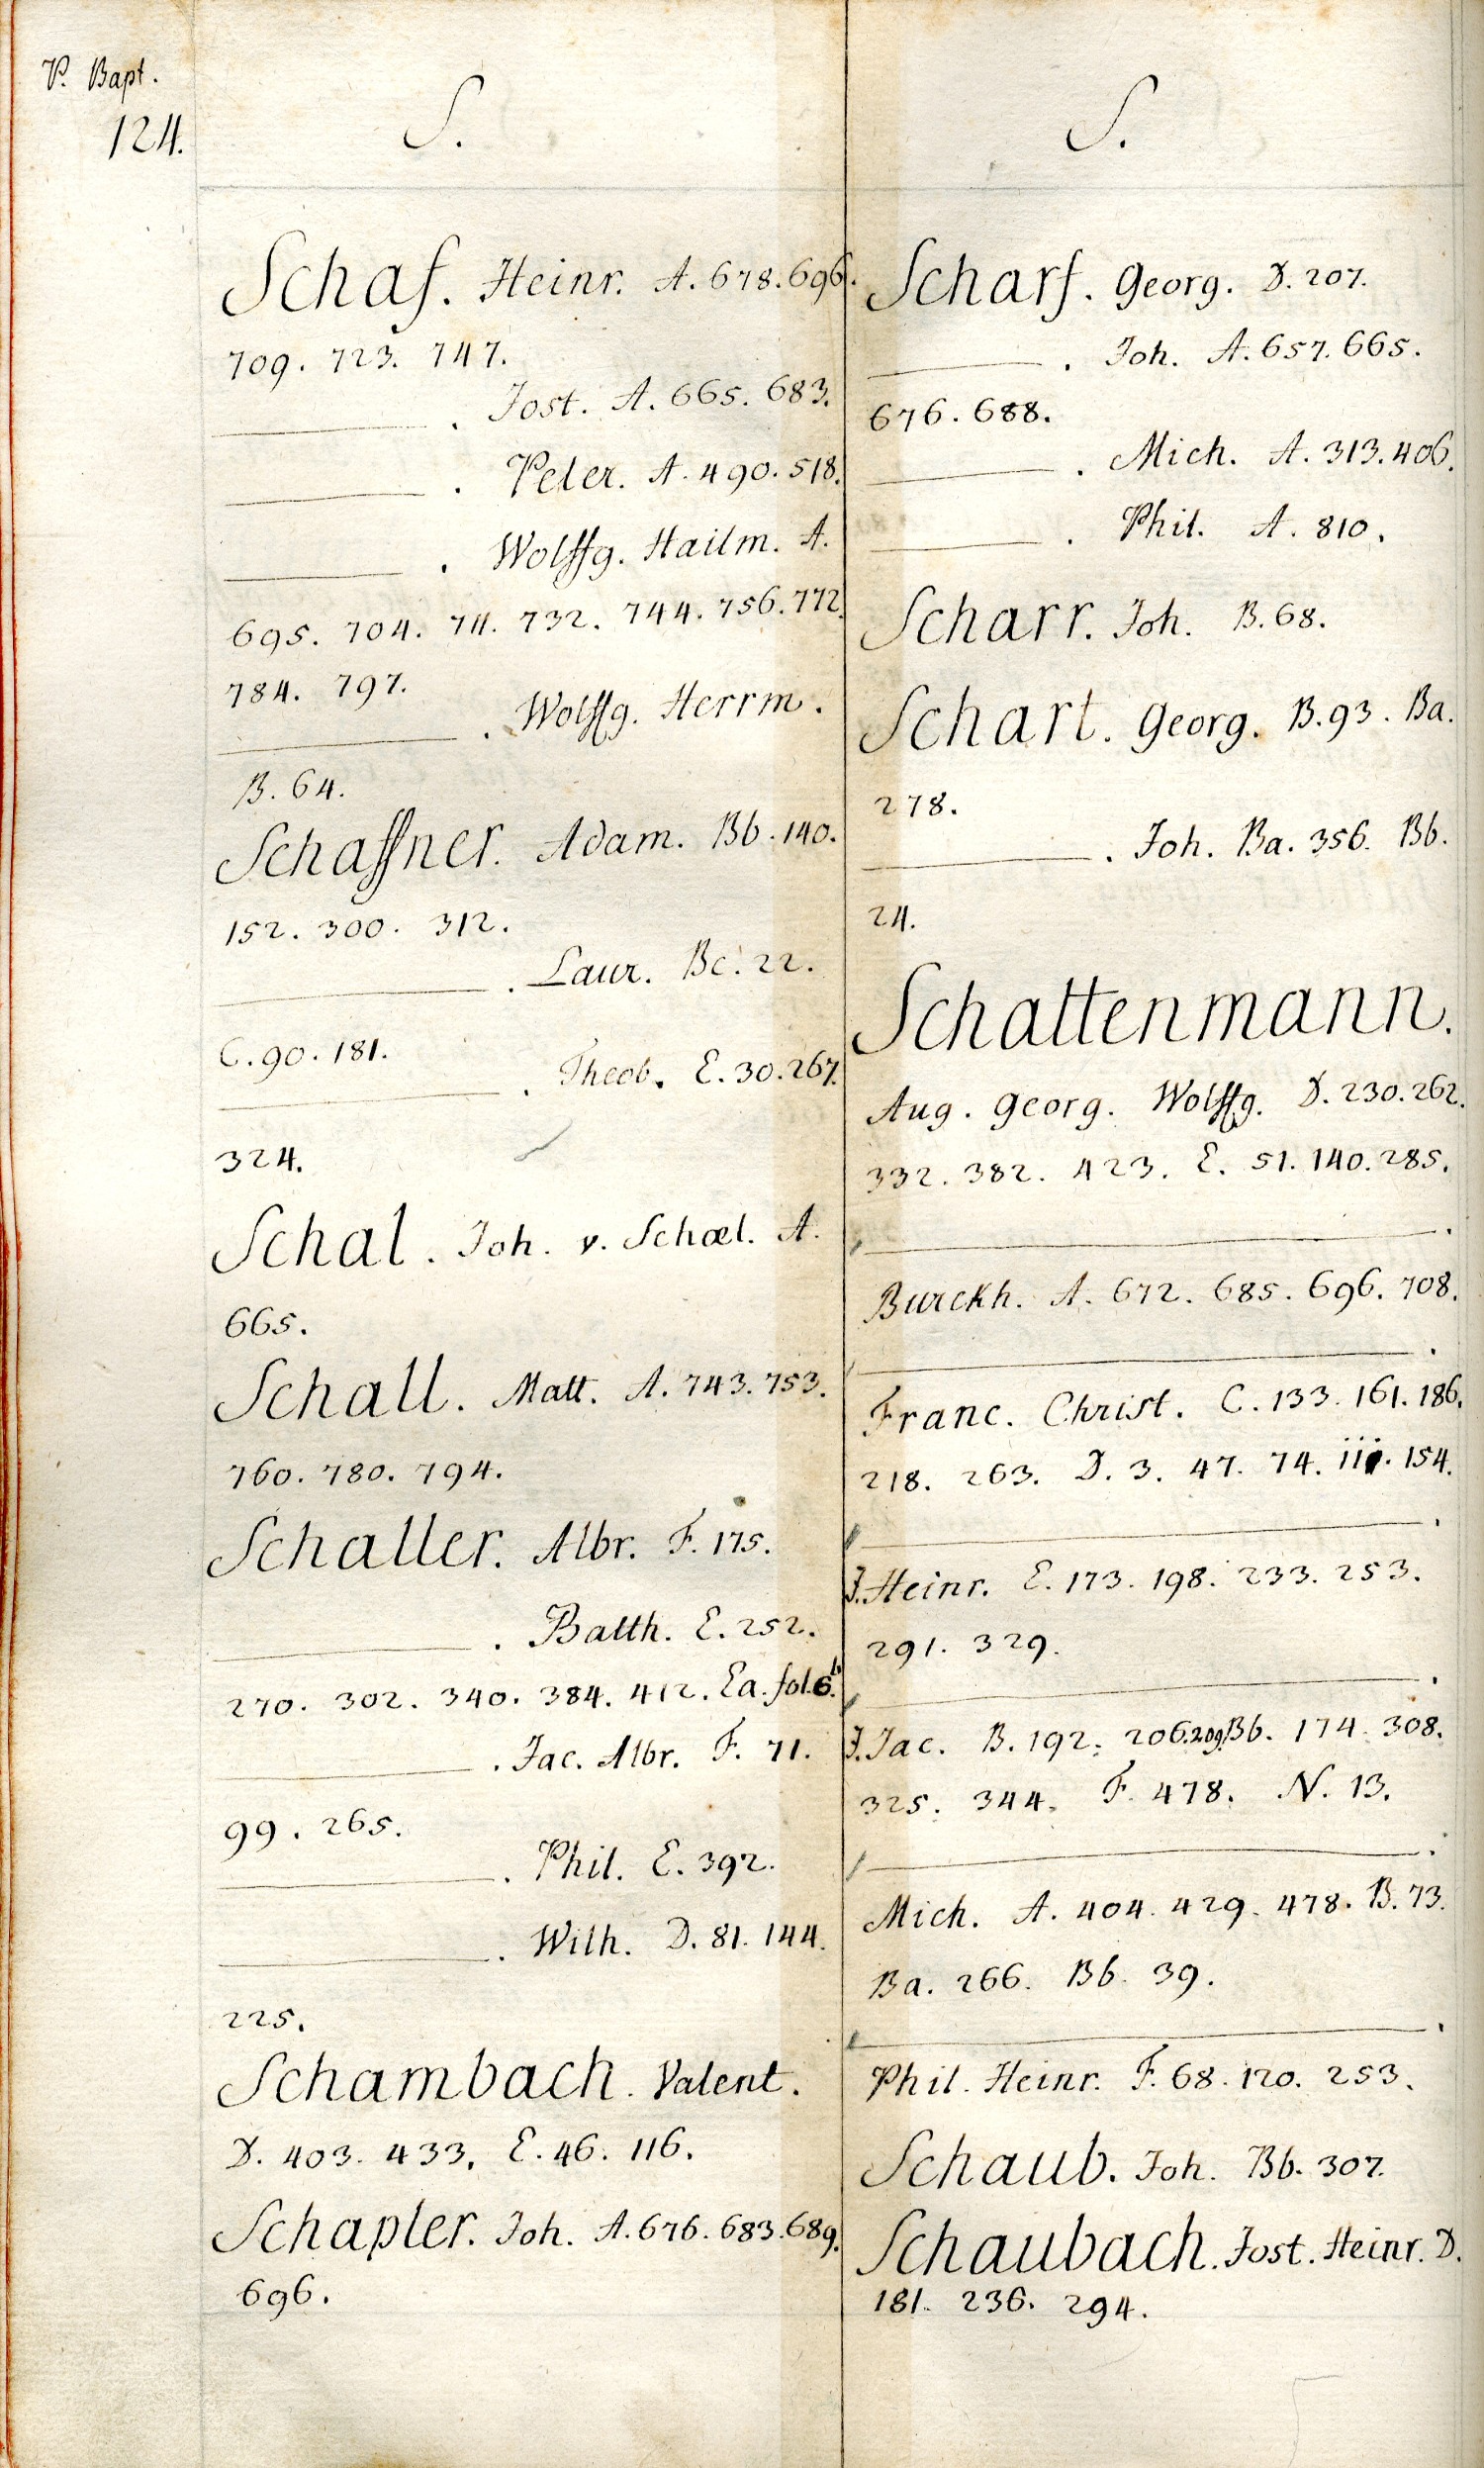 P. Bapt.
124.
S.
Schaf. Heinr. A. 678. 696.
709. 723. 747.
———. Jost. A. 665. 683.
———. Peter. A. 490. 518.
———. Wolffg. Hailm. A.
695. 704. 711. 732. 744. 756. 772.
784. 797.
———. Wolffg. Herrm.
B. 64.
Schaffner. Adam. Bb. 140.
152. 300. 312.
———. Laur. Bc. 22.
C. 90. 181.
———. Theob. E. 30. 267.
324.
Schal. Joh. v. Schæl. A.
665.
Schall. Matt. A. 743. 753.
760. 780. 794.
Schaller. Albr. F. 175.
———. Balth. E. 252.
270. 302. 340. 384. 412. Ea. fol. 6.b
———. Jac. Albr. F. 71.
99. 265.
———. Phil. E. 392.
———. Wilh. D. 81. 144.
225.
Schambach. Valent.
D. 403. 433. E. 46. 116.
Schapler. Joh. A. 676. 683. 689.
696.
S.
Scharf. Georg. D. 207.
———. Joh. A. 657. 665.
676. 688.
———. Mich. A. 313. 406.
———. Phil. A. 810.
Scharr. Joh. B. 68.
Schart. Georg. B. 93. Ba.
278.
———. Joh. Ba. 356. Bb.
24.
Schattenmann.
Aug. Georg. Wolffg. D. 230. 262.
332. 382. 423. E. 51. 140. 285.
———.
Burckh. A. 672. 685. 696. 708.
———.
Franc. Christ. C. 133. 161. 186.
218. 263. D. 3. 47. 74. 111. 154.
———.
J. Heinr. E. 173. 198. 233. 253.
291. 329.
———.
J. Jac. B. 192. 206. 209. Bb. 174. 308.
325. 344. F. 478. N. 13.
———.
Mich. A. 404. 429. 478. B. 73.
Ba. 266. Bb. 39.
———.
Phil. Heinr. F. 68. 120. 253.
Schaub. Joh. Bb. 307.
Schaubach. Jost. Heinr. D.
181. 236. 294.